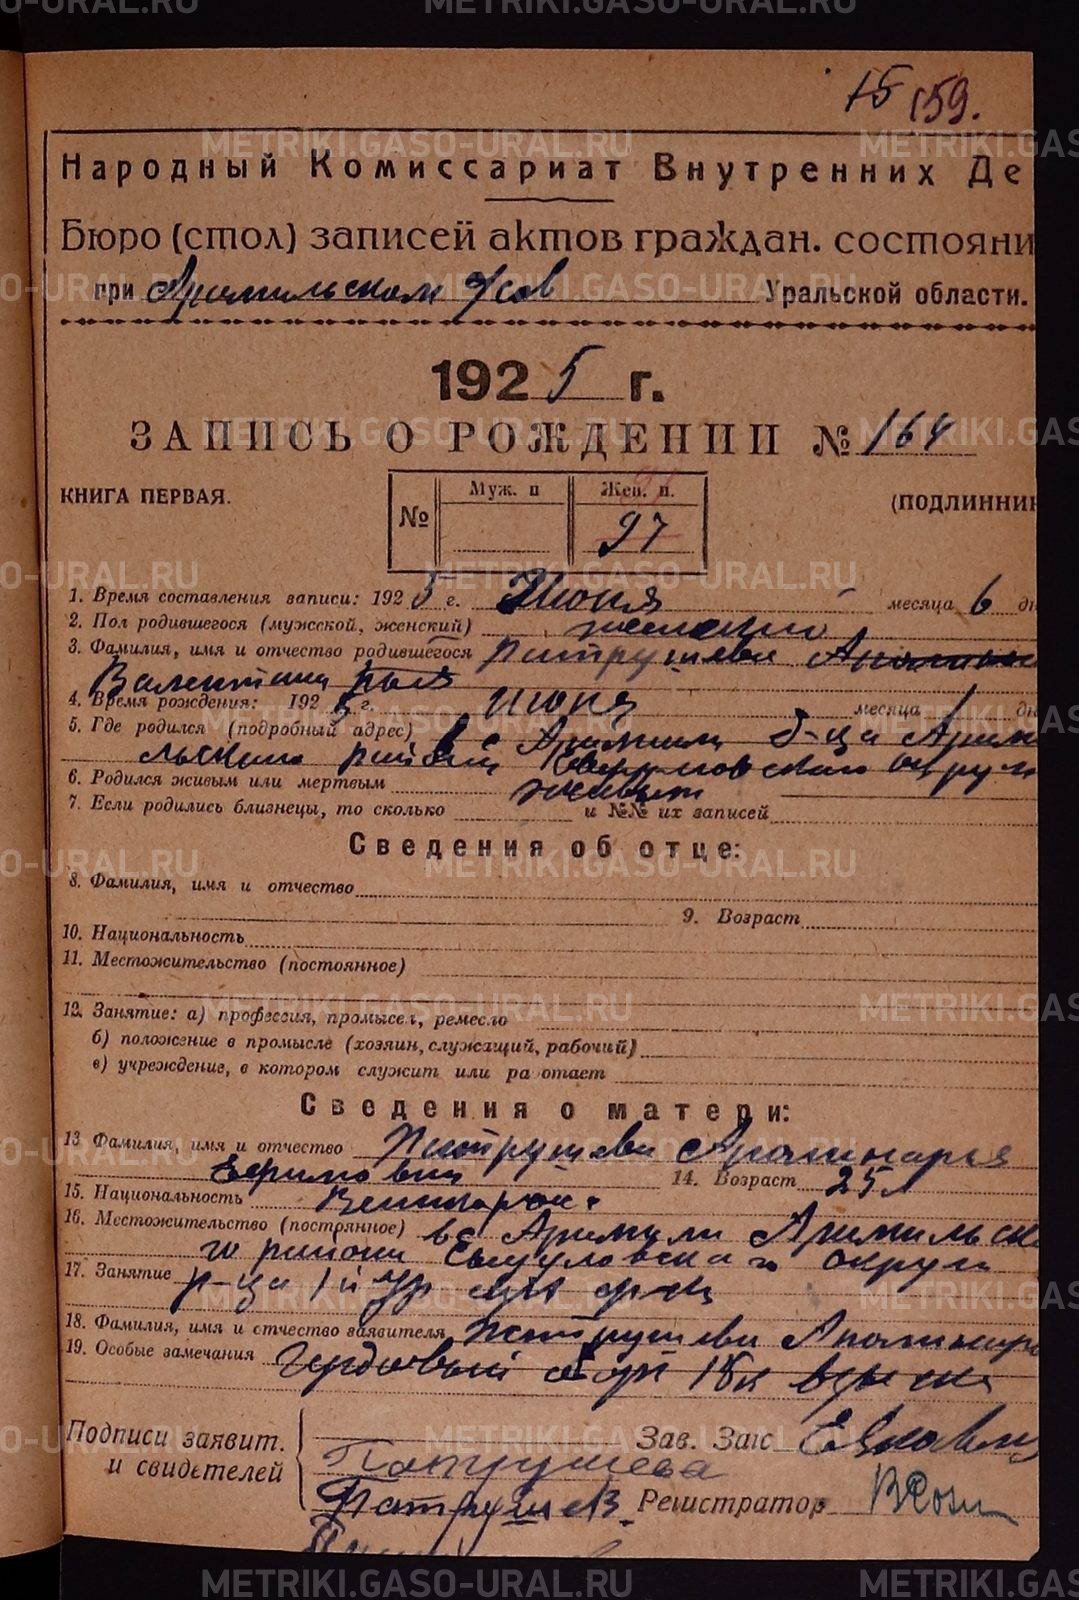 15 159.
Народный Комиссариат Внутренних Де
Бюро (стол) записей актов граждан. состояни
при Арамильском Уральской области.
1925 г.
ЗАПИСЬ О РОЖДЕНИИ № 164
КНИГА ПЕРВАЯ. (ПОДЛИННИК
№ Муж. п Жен. п.
97
1. Время составления записи: 1925 г. Июня месяца 6 дн
2. Пол родившегося (мужской, женский) женский
3. Фамилия, имя и отчество родившегося Патрушева
Валентина
4. Время рождения: 1925 г. июня месяца 1 дн
5. Где родился (подробный адрес) в с Арамили
района Свердловского округа
6. Родился живым или мертвым живым
7. Если родились близнецы, то сколько и №№ их записей
Сведения об отце:
8. Фамилия, имя и отчество
9. Возраст
10. Национальность
11. Местожительство (постоянное)
12. Занятие: а) профессия, промысел, ремесло
б) положение в промысле (хозяин, служащий, рабочий)
в) учреждение, в котором служит или ра отает
Сведения о матери:
13 Фамилия, имя и отчество Патрушева Апалинарья
14. Возраст 25 л
15. Национальность Великорос.
16. Местожительство (постоянное) в с Арамили Арамильско
го района Свердловского округа
17. Занятие р-ца
18. Фамилия, имя и отчество заявителя Патрушева Апалинар
19. Особые замечания Гербовый сбор
Подписи заявит. Зав. Загс
и свидетелей Патрушева
Патрушев. Регистратор
METRIKI.GASO-URAL.RU